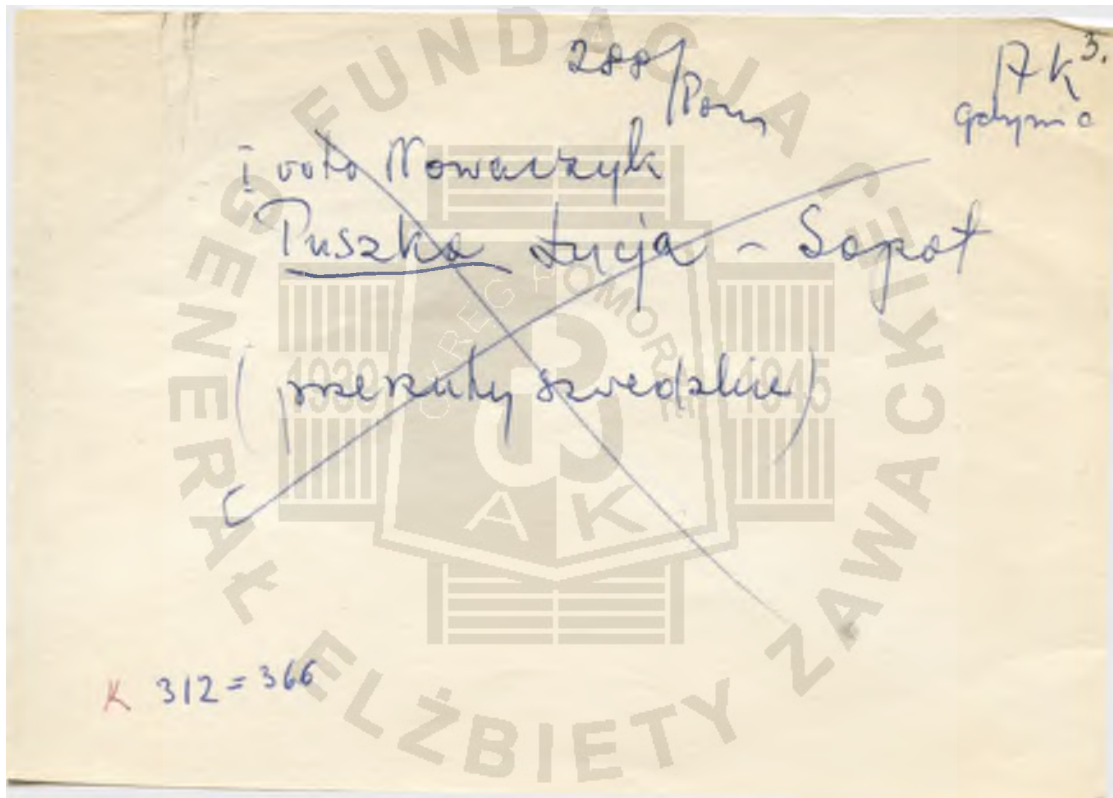 288/Pom
AK 3.
Gdynia
I voto Nowarzyk
Puszka Łucja - Sopot
(przerzuty szwedzkie)
K 312 = 366
FUNDACJA GENERAŁ ELŻBIETY ZAWACKIEJ
OKRĘG POMORZE
1939 1945
AK